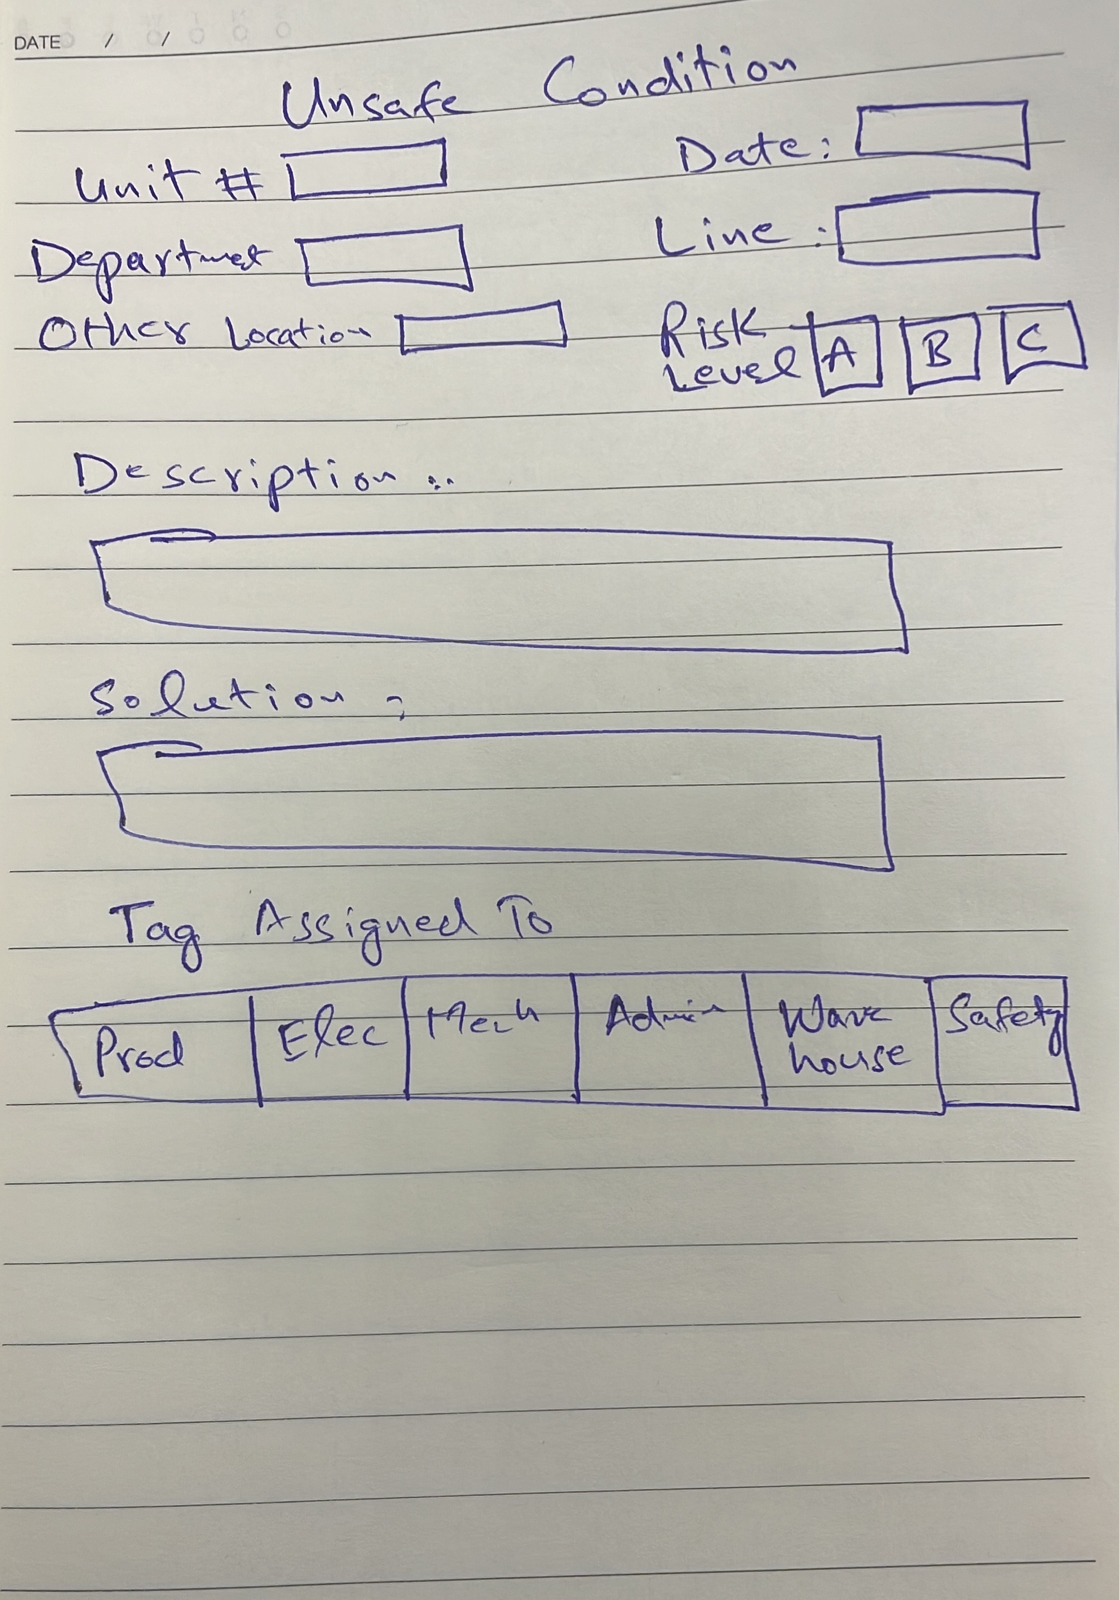 DATE / /
Unsafe Condition
Unit # Date:
Department Line :
Other Location Risk Level A B C
Description :
Solution :
Tag Assigned To
Prod Elec Mech Admin Ware house Safety